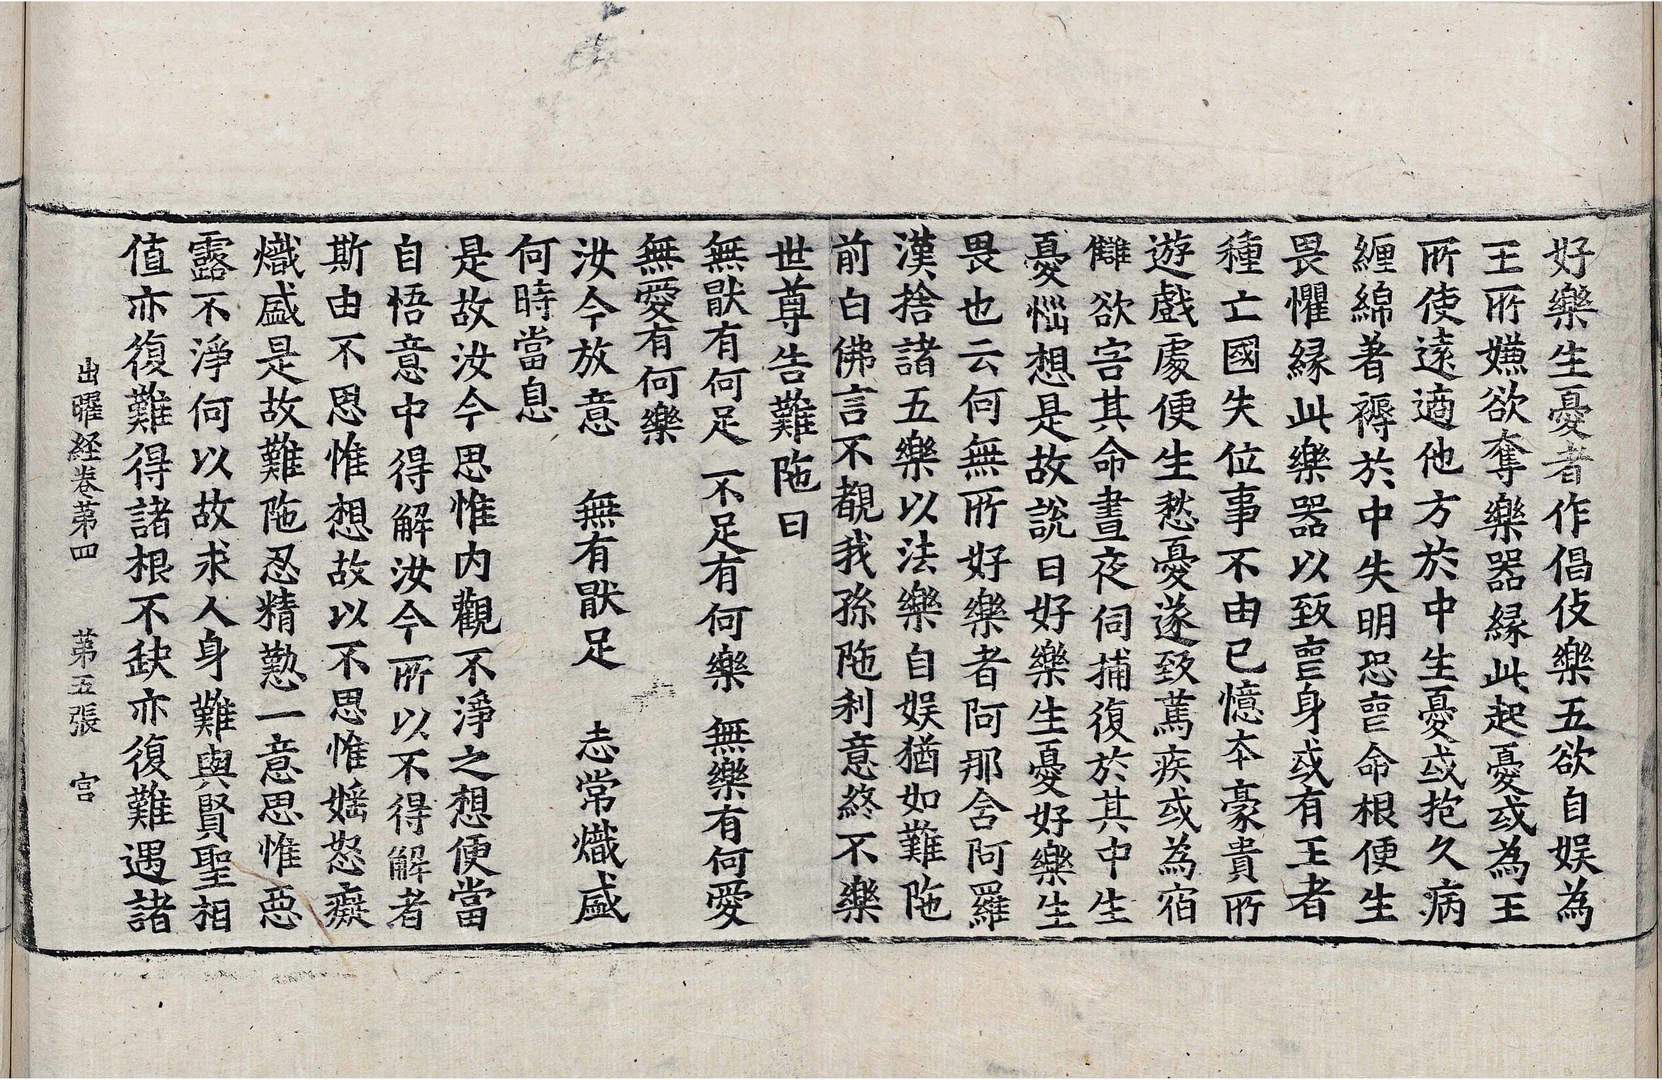 好樂生憂者作倡伎樂五欲自娛為
王所嫌欲奪樂器縁此起憂或為王
所使遠適他方於中生憂或抱久病
纏綿著褥於中失明恐喪命根便生
畏懼縁此樂器以致喪身或有王者
種亡國失位事不由已憶本豪貴所
遊戲處便生愁憂遂致萬疾或為宿
讎欲害其命晝夜伺捕復於其中生
憂惱想是故說曰好樂生憂好樂生
畏也云何無所好樂者阿那含阿羅
漢捨諸五樂以法樂自娛猶如難陁
前白佛言不覩我孫陁利意終不樂
世尊告難陁曰
無猒有何足 不足有何樂 無樂有何愛
無愛有何樂
汝今放意 無有猒足 志常熾盛
何時當息
是故汝今思惟內觀不淨之想便當
自悟意中得解汝今所以不得解者
斯由不思惟想故以不思惟婬怒癡
熾盛是故難陁忍精懃一意思惟惡
露不淨何以故求人身難與賢聖相
值亦復難得諸根不缺亦復難遇諸
出曜経卷第四 第五張 宮